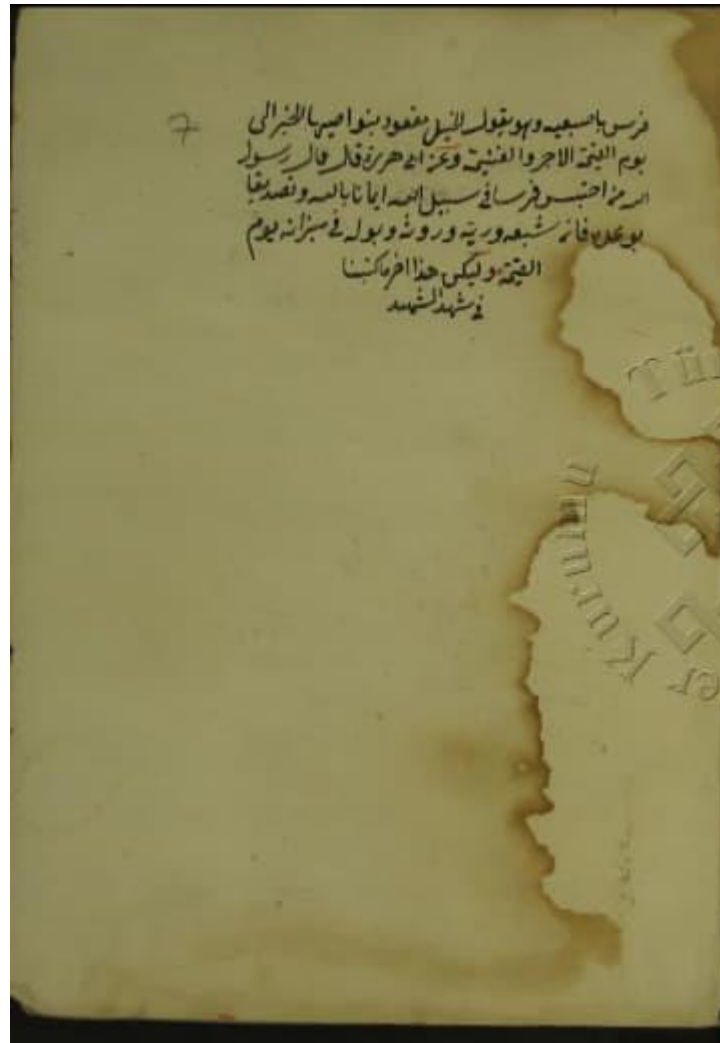 7
فرس باصبعيه وهو يقول الخيل معقود بنواصيها الخير الى
يوم القيمة الاجر والغنيمة وعن ابي هريرة قال قال رسول
الله من احتبس فرسا في سبيل الله ايمانا بالله وتصديقا
بوعده فان شبعه وريه وروثه وبوله في ميزانه يوم
القيمة وليكن هذا اخر ما كتبنا
في شهد الشهيد
Tü
er Kurumu